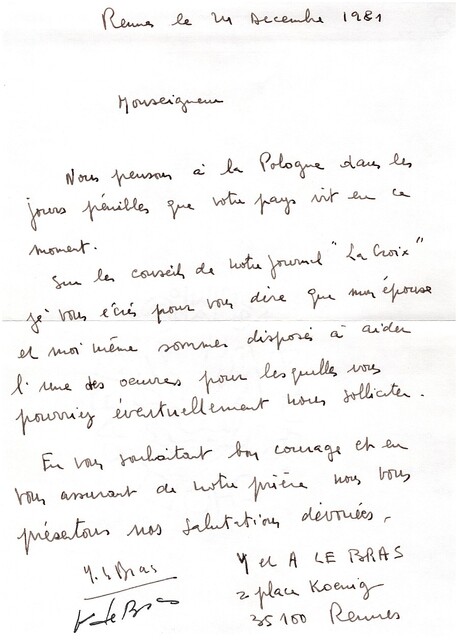 Rennes le 24 Decembre 1981
Monseigneur
Nous pensons à la Pologne dans les
jours pénibles que votre pays vit en ce
moment.
Sur les conseils de notre journal "La Croix"
je vous écris pour vous dire que mon épouse
et moi même sommes disposés à aider
l'une des oeuvres pour lesquelles vous
pourriez éventuellement nous solliciter.
En vous souhaitant bon courage et en
vous assurant de notre prière nous vous
présentons nos salutations dévouées.
Y. le Bras
Y et A LE BRAS
A le Bras
2 place Koenig
35100 Rennes